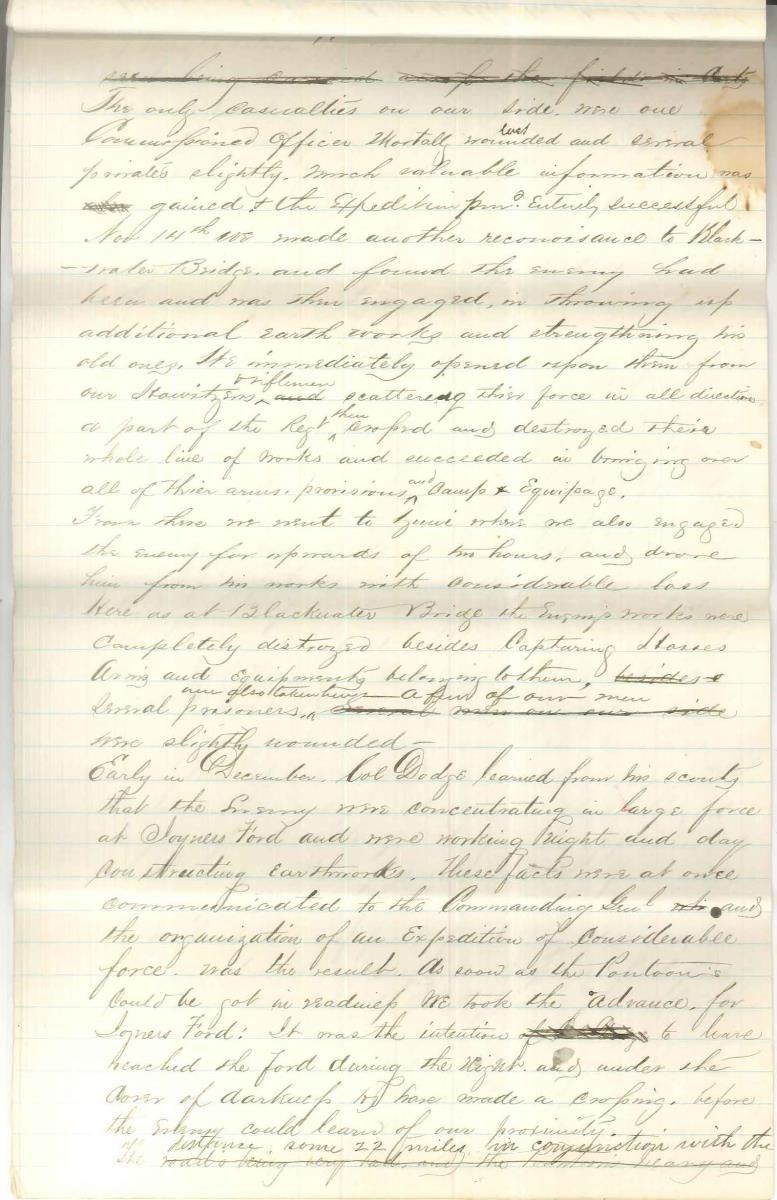 men being carried across the field in Arty
The only casualties on our side were one
Commissioned Officer Mortally wounded and several
but
privates slightly. Much valuable information was
gained & the Expedition prvd Entirely successful
Nov 14th We made another reconoisance to Black-
-water Bridge. and found the enemy had
been and was then engaged, in throwing up
additional earth works and strengthning his
old ones. We immediately opened upon them from
& riflemen
our Howitzers, and scattering thier force in all direction
then
a part of the Regt crossed and destroyed there
whole line of works and succeeded in bringing over
and
all of thier arms. provisions, Camp & Equipage.
From there we went to Zuni where we also engaged
the enemy for upwards of two hours, and drove
him from his works with considerable loss
Here as at Blackwater Bridge the Enemys works were
completely distroyed besides Capturing Horses
Arms and Equipments belonging to them, besides
were also taken here a few of our men
Several prisoners, Several men on our side
were slightly wounded -
Early in December. Col Dodge learned from his scouts
that the Enemy were concentrating in large force
at Joyners Ford and were working Night and day
constructing Earthworks. These facts were at once
communicated to the Commanding Genl and
the organization of an Expedition of considerable
force. was the result. As soon as the Pontoons
could be got in readiness We took the advance. for
Joyners Ford: It was the intention to have
reached the Ford during the Night. and under the
cover of darkness to have made a crossing. before
the Enemy could learn of our proximity.
distance, some 22 miles, in conjunction with the
The roads being very bad and the Pontoons heavy and